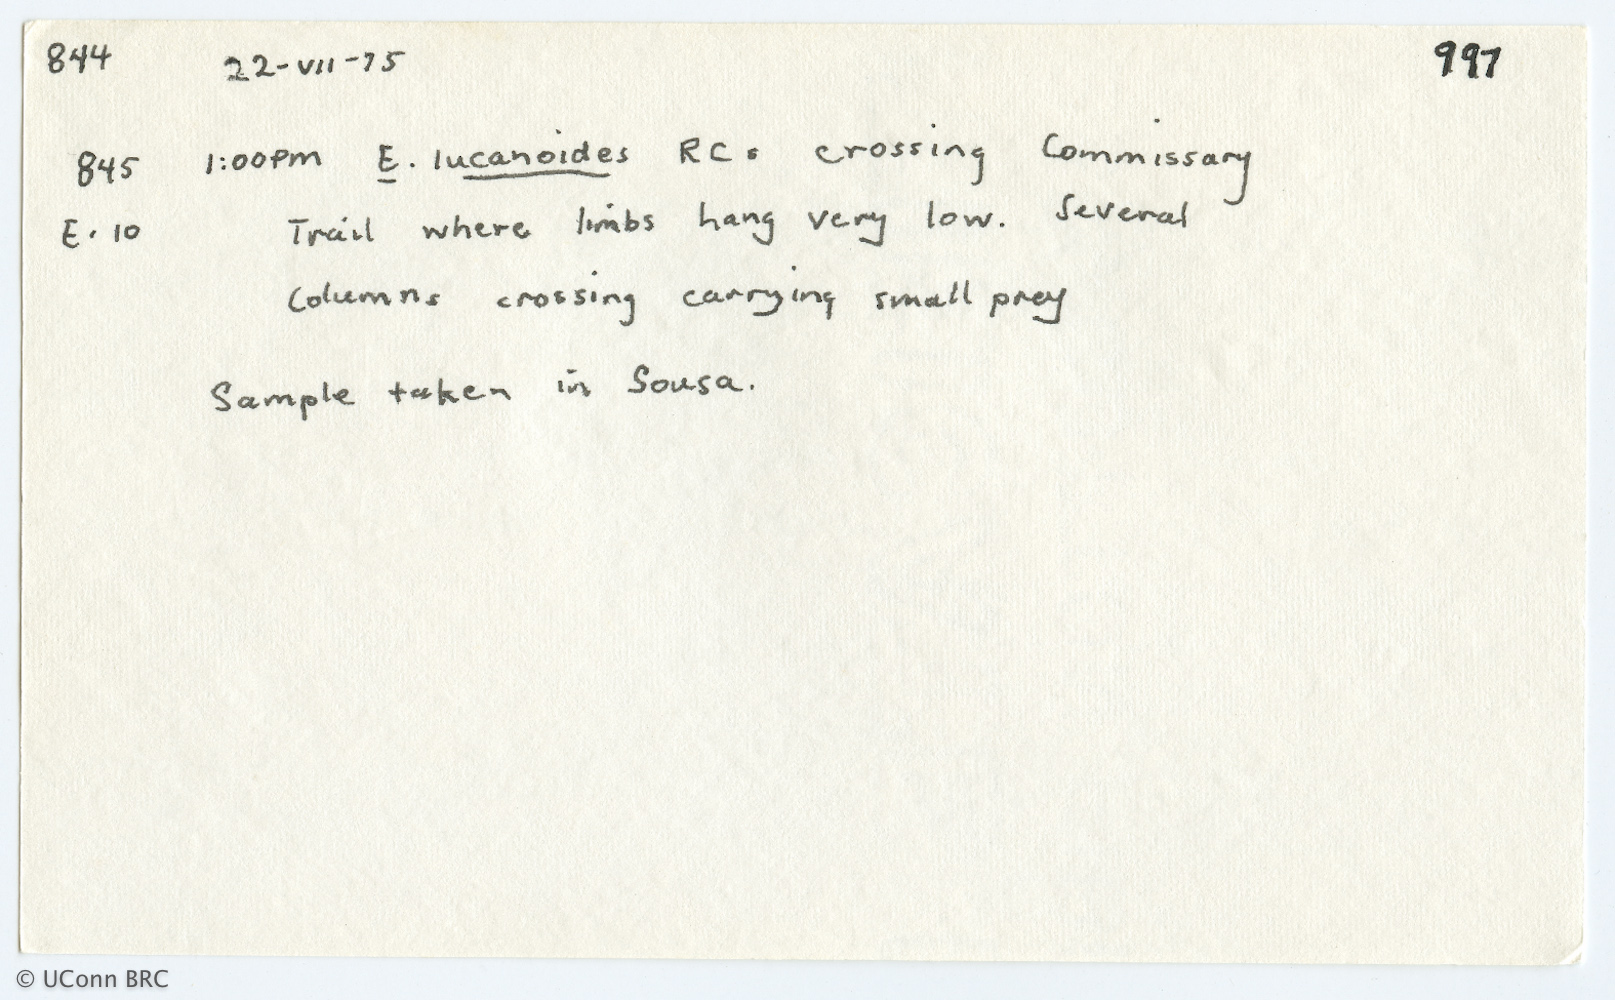 844 22-VII-75 997
845 1:00PM E. lucanoides RCs crossing Commissary
E.10 Trail where limbs hang very low. Several
Columns crossing carrying small prey
Sample taken in Sousa.
© UConn BRC